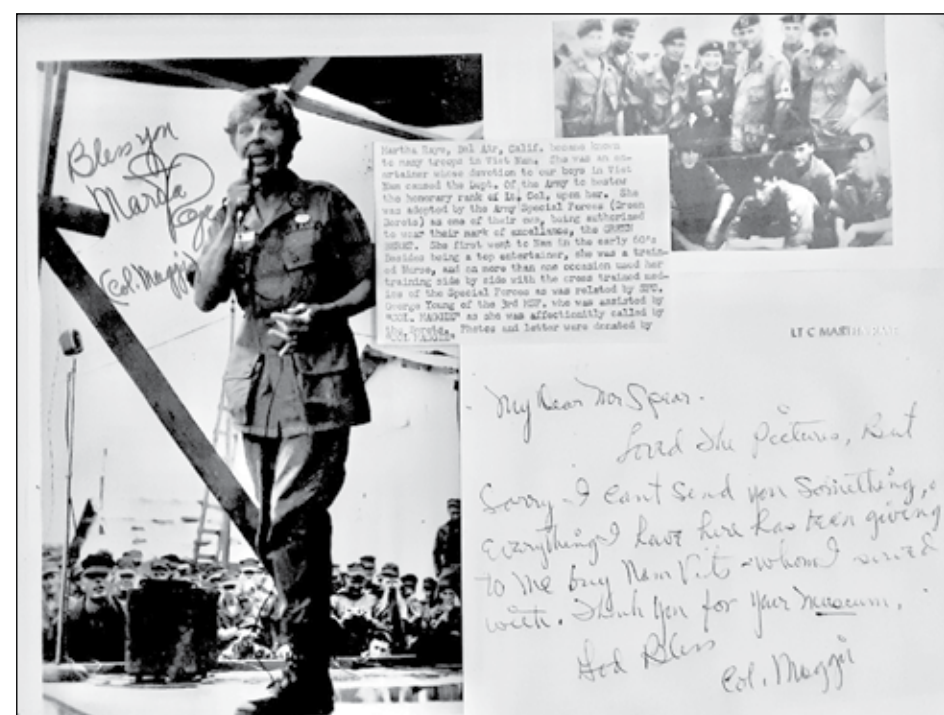 Bless you
Martha
Raye
(Col. Maggi)
Martha Raye, Bel Air, Calif. became known
to many troops in Viet Nam. She was an en-
tertainer whose devotion to our boys in Viet
Nam caused the Dept. Of the Army to bestow
the honorary rank of Lt. Col. upon her. She
was adopted by the Army Special Forces (Green
Berets) as one of their own, being authorized
to wear their mark of excellence, the GREEN
BERET. She first went to Nam in the early 60's
Besides being a top entertainer, she was a train-
ed Nurse, and on more than one occasion used her
training side by side with the cross trained med-
ics of the Special Forces as was related by
George Young of the 3rd MSF, who was assisted by
"COL. MAGGIE" as she was affectionitly called by
the Berets. Photos and letter were donated by
"COL MAGGIE"
LT C MARTHA RAYE
My Dear Mr Spear.
Loved the Pictures, But
Sorry I cant Send you Something,
everything I have here has been giving
to me buy Nam Vits - whom I served
with. Thank you for your Museum.
God Bless
Col. Maggi